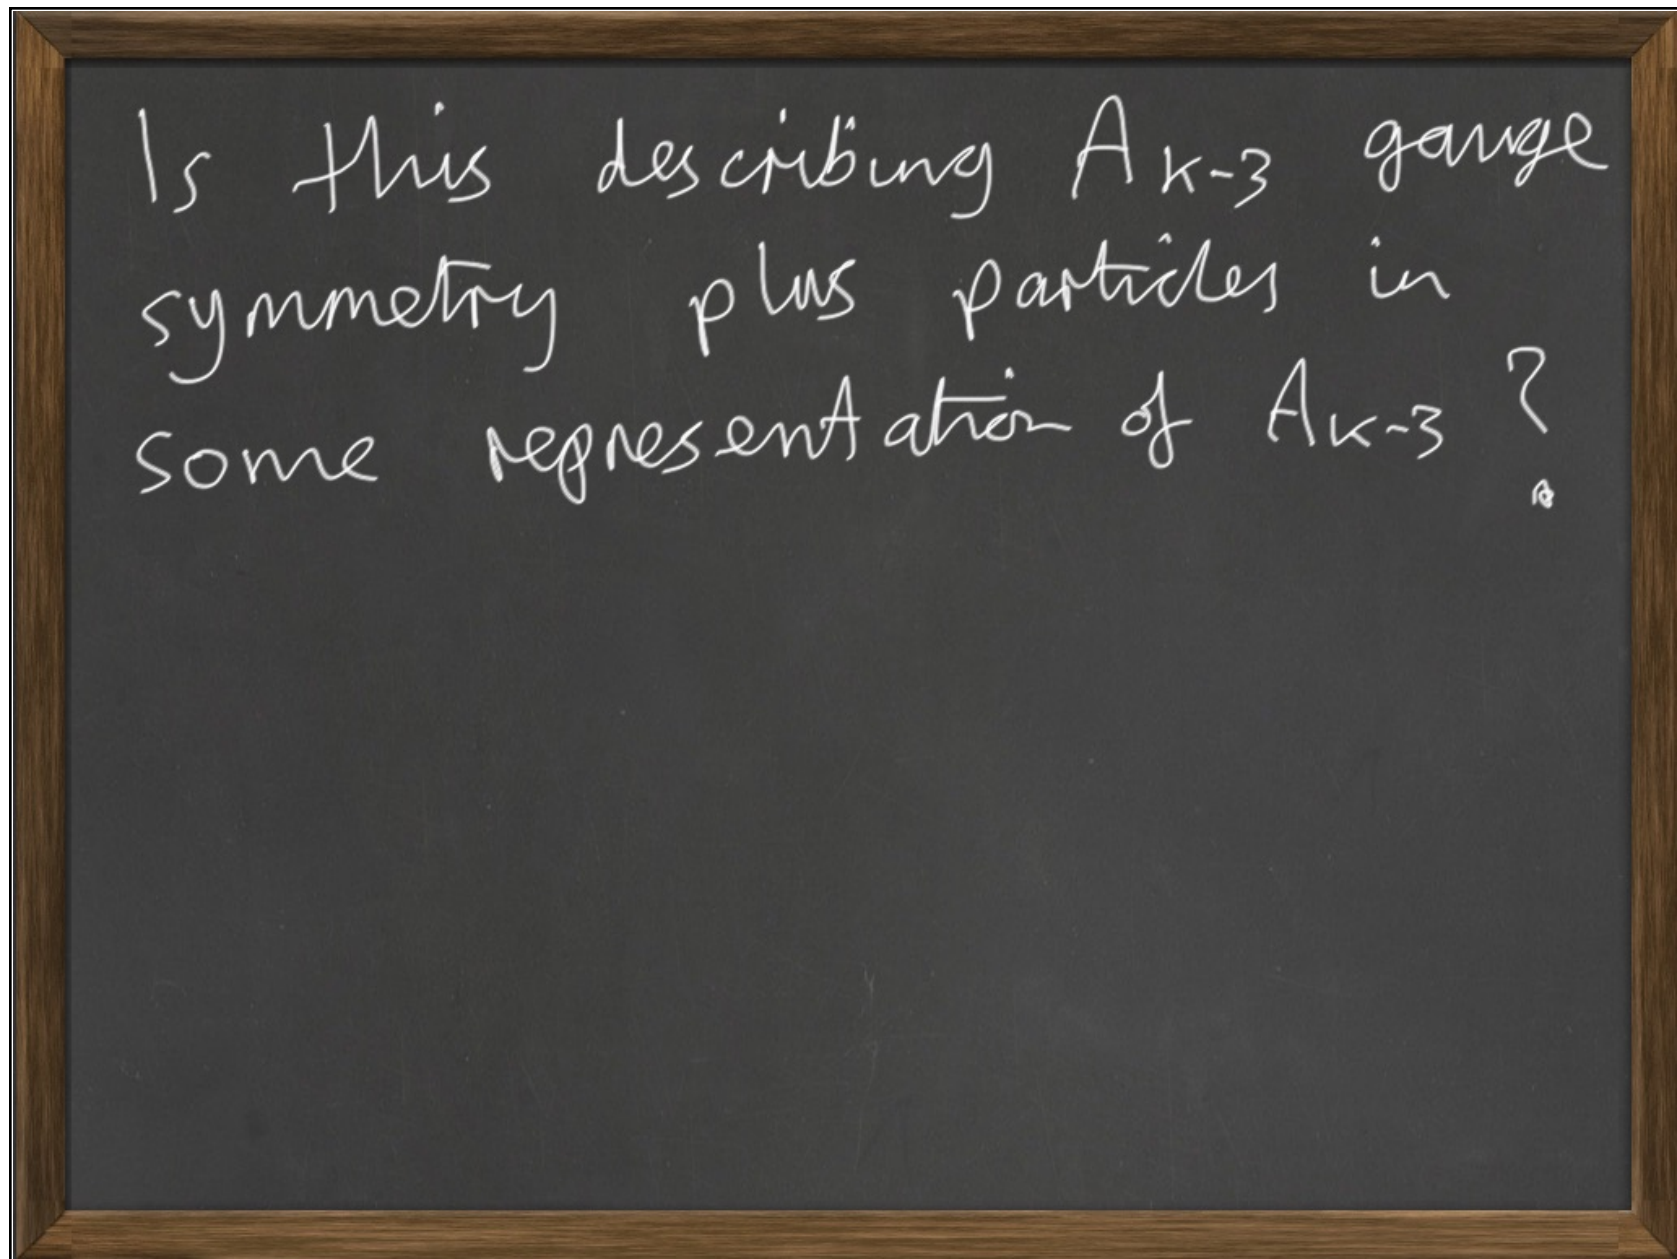 Is this describing A K-3 gauge
symmetry plus particles in
some representation of A K-3 ?